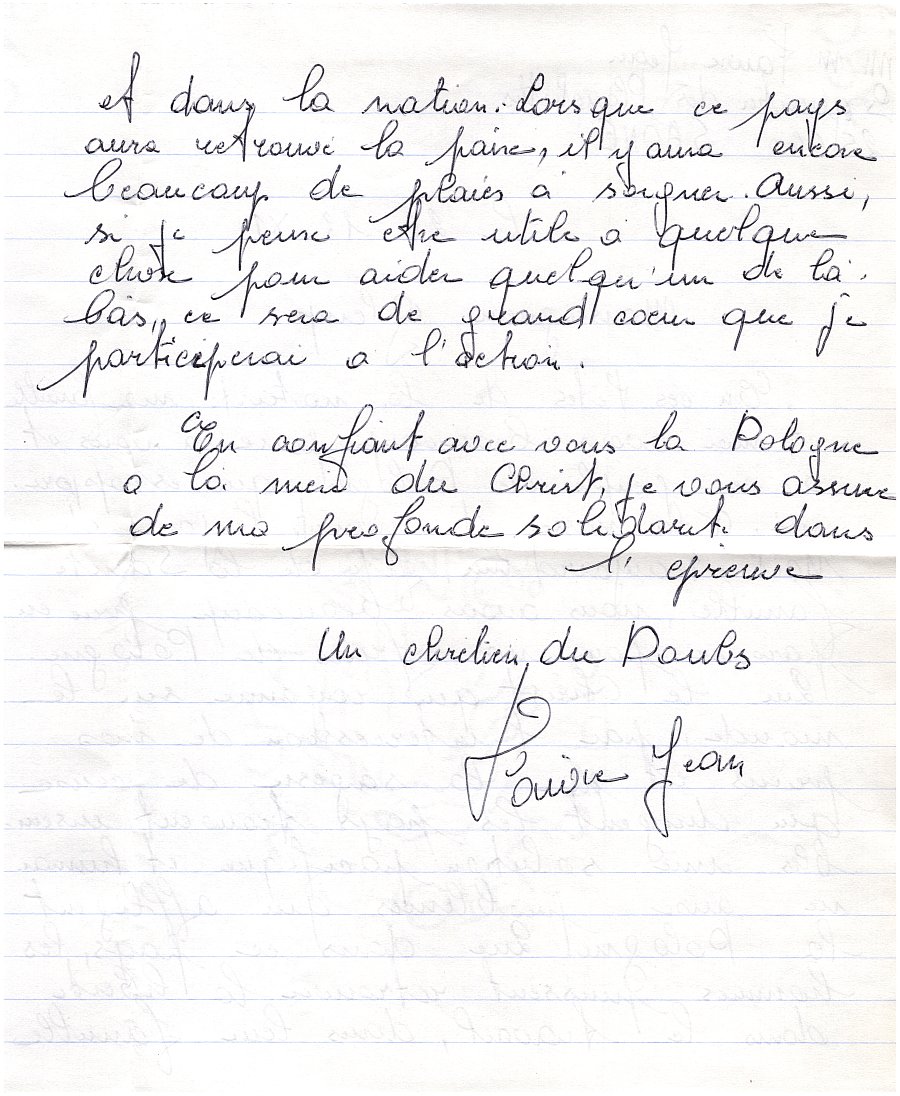 et dans la nation. Lorsque ce pays
aura retrouvé la paix, il y aura encore
beaucoup de plaies à soigner. Aussi,
si je peux être utile à quelque
chose pour aider quelqu'un de là-
bas, ce sera de grand coeur que je
participerai à l'action.
En confiant avec vous la Pologne
à la mère du Christ, je vous assure
de ma profonde solidarité dans
l'épreuve
Un chrétien du Doubs
Jean